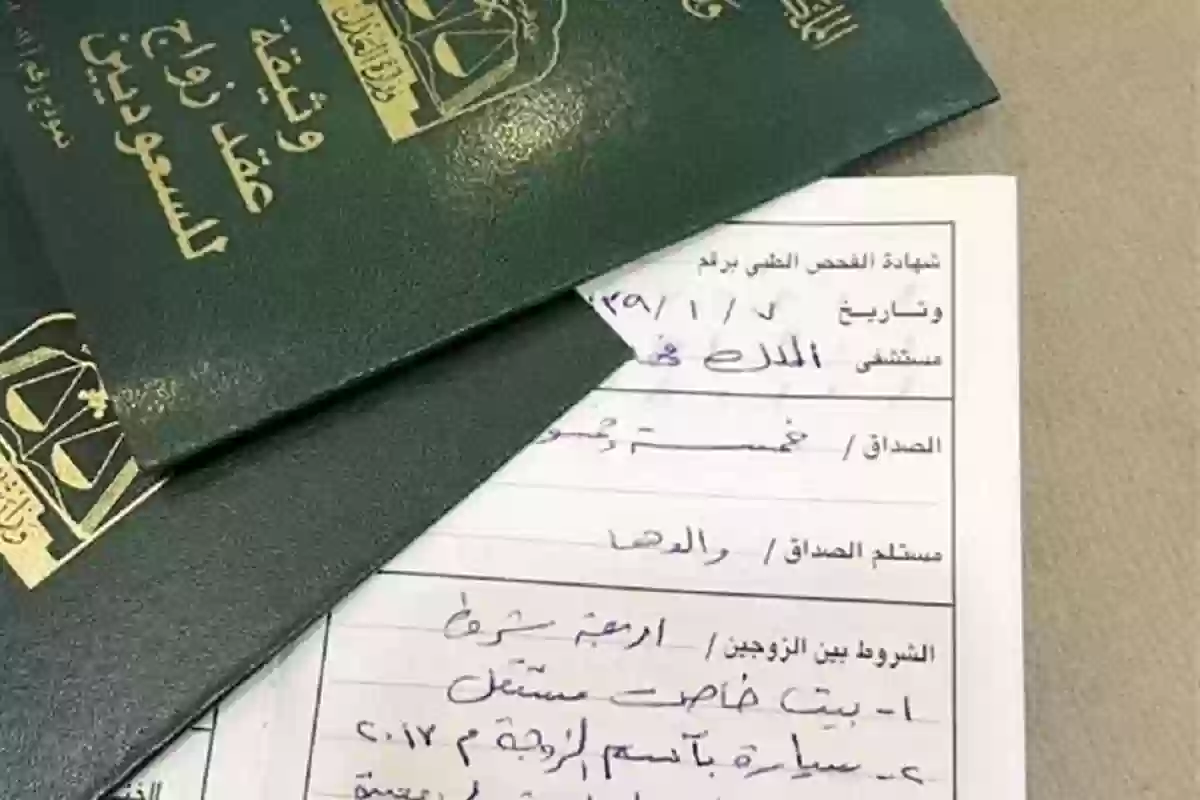 وثيقة
عقد زواج
للسعوديين
نموذج رقم
وزارة العدل
شهادة الفحص الطبي برقم
وتاريخ ٧ / ١ / ٣٩
مستشفى الملك
الصداق / خمسة
مستلم الصداق / والدها
الشروط بين الزوجين / اربعة شروط
١- بيت خاص مستقل
٢- سيارة بآسم الزوجة م ٢٠١٧